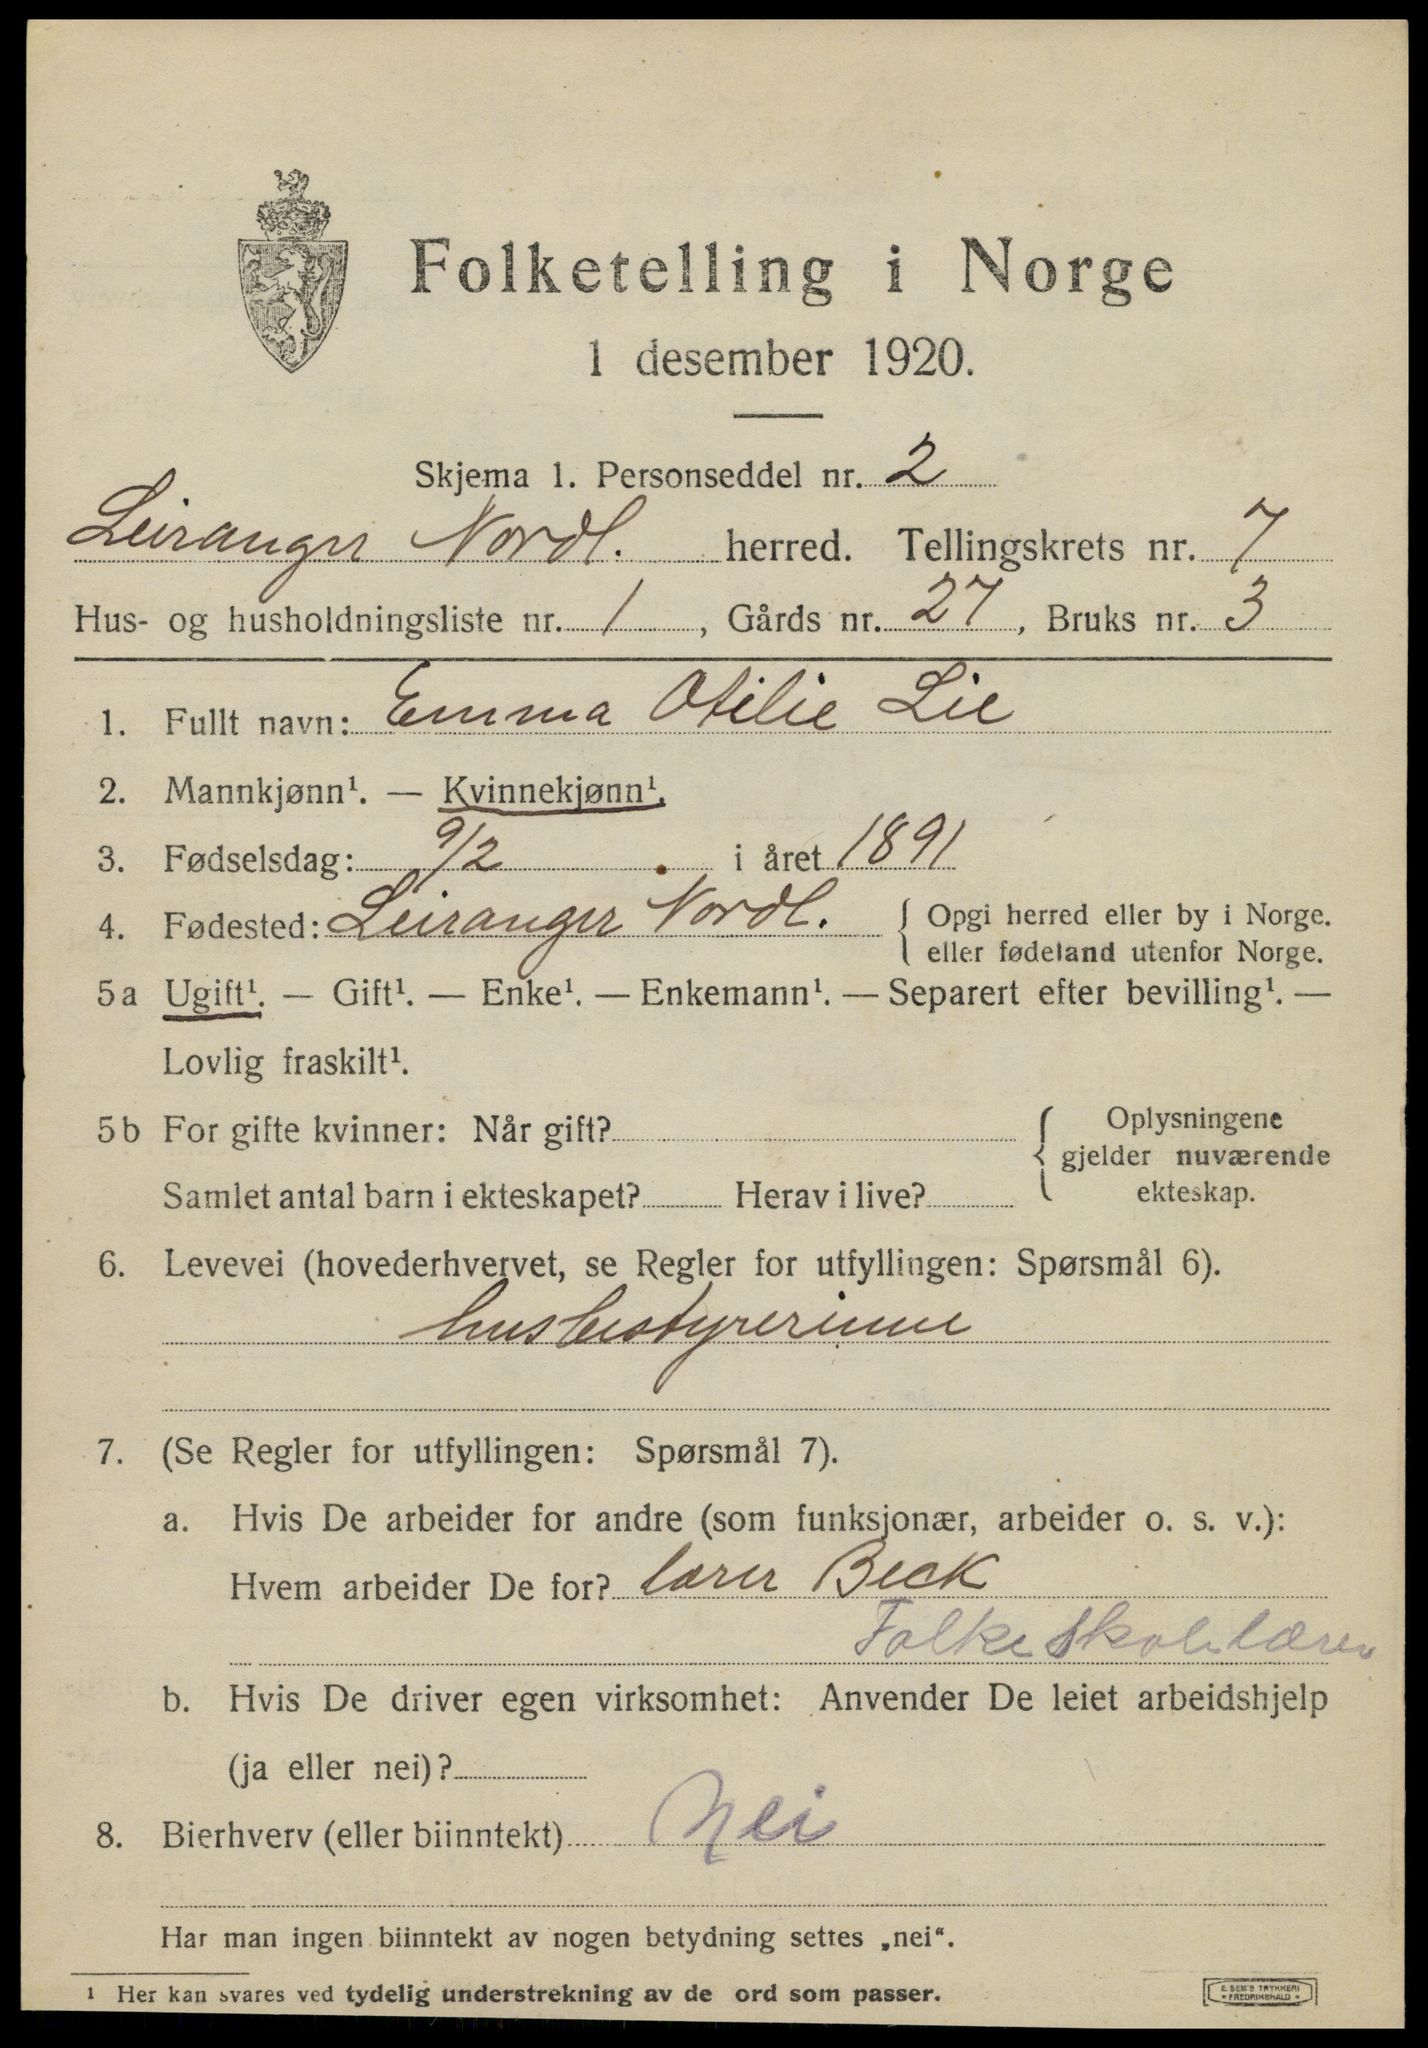 Folketelling i Norge
1 desember 1920.
Skjema 1. Personseddel nr. 2
Leiranger Nordl. herred. Tellingskrets nr. 7
Hus- og husholdningsliste nr. 1, Gårds nr. 27, Bruks nr. 3
1. Fullt navn: Emma Otilie Lie
2. Mannkjønn¹. — Kvinnekjønn¹.
3. Fødselsdag: 9/2 i året 1891
4. Fødested: Leiranger Nordl. { Opgi herred eller by i Norge.
eller fødeland utenfor Norge.
5a Ugift¹. — Gift¹. — Enke¹. — Enkemann¹. — Separert efter bevilling¹. —
Lovlig fraskilt¹.
5b For gifte kvinner: Når gift? { Oplysningene
gjelder nuværende
Samlet antal barn i ekteskapet? Herav i live? ekteskap.
6. Levevei (hovederhvervet, se Regler for utfyllingen: Spørsmål 6).
husbestyrerinne
7. (Se Regler for utfyllingen: Spørsmål 7).
a. Hvis De arbeider for andre (som funksjonær, arbeider o. s. v.):
Hvem arbeider De for? lærer Beck
Folkeskolelærer
b. Hvis De driver egen virksomhet: Anvender De leiet arbeidshjelp
(ja eller nei)?
8. Bierhverv (eller biinntekt) Nei
Har man ingen biinntekt av nogen betydning settes „nei“.
1 Her kan svares ved tydelig understrekning av de ord som passer.
E. SEM'S TRYKKERI
* FREDRIKSHALD *